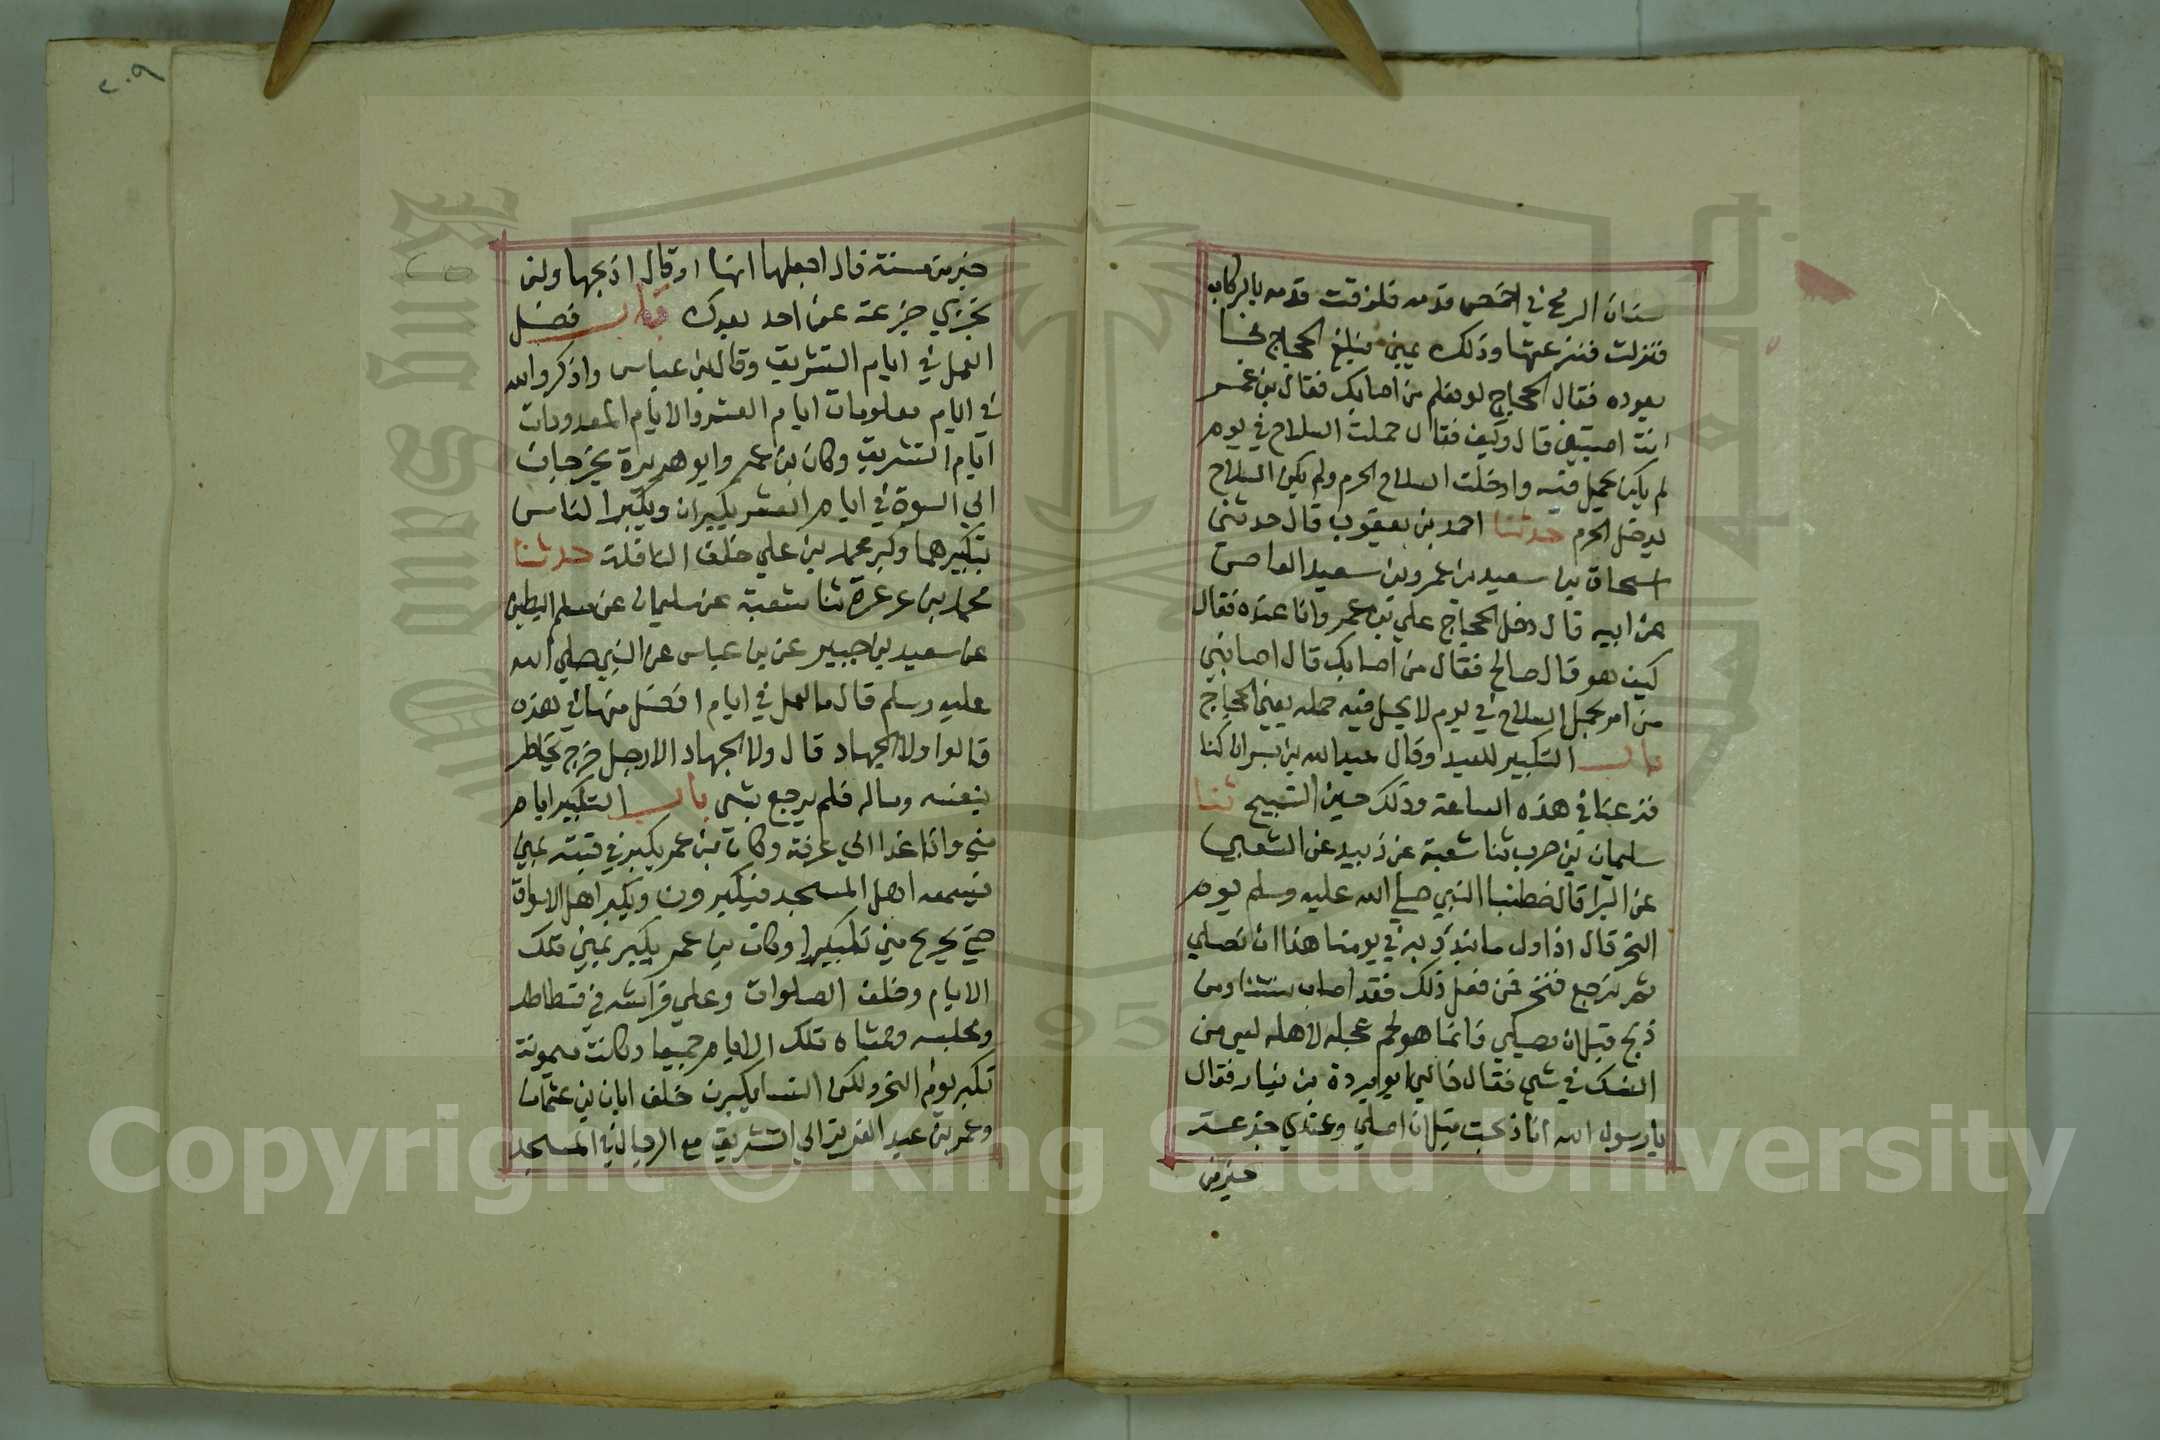 سنان الرمح في اخمص قدمه فلزقت قدمه بالركاب
فنزلت فنزعتها وذلك بمنى فبلغ الحجاج فجا
يعوده فقال الحجاج لو نعلم من اصابك فقال بن عمر
انت اصبتني قال وكيف فقال حملت السلاح في يوم
لم يكن يحمل فيه وادخلت السلاح الحرم ولم يكن السلاح
يدخل الحرم حدثنا احمد بن يعقوب قال حدثني
اسحاق بن سعيد بن عمرو بن سعيد العاص
عن ابيه قال دخل الحجاج على بن عمر وانا عنده فقال
كيف هو قال صالح فقال من اصابك قال اصابني
من امر بحمل السلاح في يوم لا يحل فيه حمله يعني الحجاج
باب التكبير للعيد وقال عبدالله بن بسر انا كنا
فزعنا في هذه الساعة وذلك حين التسبيح ثنا
سليمان بن حرب ثنا شعبة عن زبيد عن الشعبي
عن البرا قال خطبنا النبي صلى الله عليه وسلم يوم
النحر قال اذ اول ما نبدؤ به في يومنا هذا ان نصلي
ثم نرجع فننحر فمن فعل ذلك فقد اصاب سنتنا ومن
ذبح قبل ان يصلي فانما هو لحم عجله لاهله ليس من
النسك في شي فقال خالي ابو بردة بن نيار فقال
يا رسول الله انا ذبحت قبل ان اصلي وعندي جذعة
خير من
٢٠٩
خير من مسنة قال اجعلها انها او قال اذبحها ولن
تجزي جزعة عن احد بعدك باب فضل
العمل في ايام التشريق وقال بن عباس واذكروا الله
في ايام معلومات ايام العشر والايام المعدودات
ايام التشريق وكان بن عمر وابو هريرة يخرجان
الى السوق في ايام العشر يكبران ويكبر الناس
بتكبيرهما وكبر محمد بن علي خلف النافلة حدثنا
محمد بن عرعرة ثنا شعبة عن سليمان عن مسلم البطين
عن سعيد بن جبير عن بن عباس عن النبي صلى الله
عليه وسلم قال ما العمل في ايام افضل منها في هذه
قالوا ولا الجهاد قال ولا الجهاد الا رجل خرج يخاطر
بنفسه وماله فلم يرجع بشي باب التكبير ايام
منى واذا غدا الى عرفة وكان بن عمر يكبر في قبته بمنى
فيسمعه اهل المسجد فيكبرون ويكبر اهل الاسواق
حتى يرتج منى تكبيرا وكان بن عمر يكبر بمنى تلك
الايام وخلف الصلوات وعلى فراشه في فسطاطه
ومجلسه وممشاه تلك الايام جميعا وكانت ميمونة
تكبر يوم النحر ولكن النسا يكبرن خلف ابان بن عثمان
وعمر بن عبد العزيز الى التشريق مع الرجال في المسجد
Copyright © King Saud University
King Saud University
1957